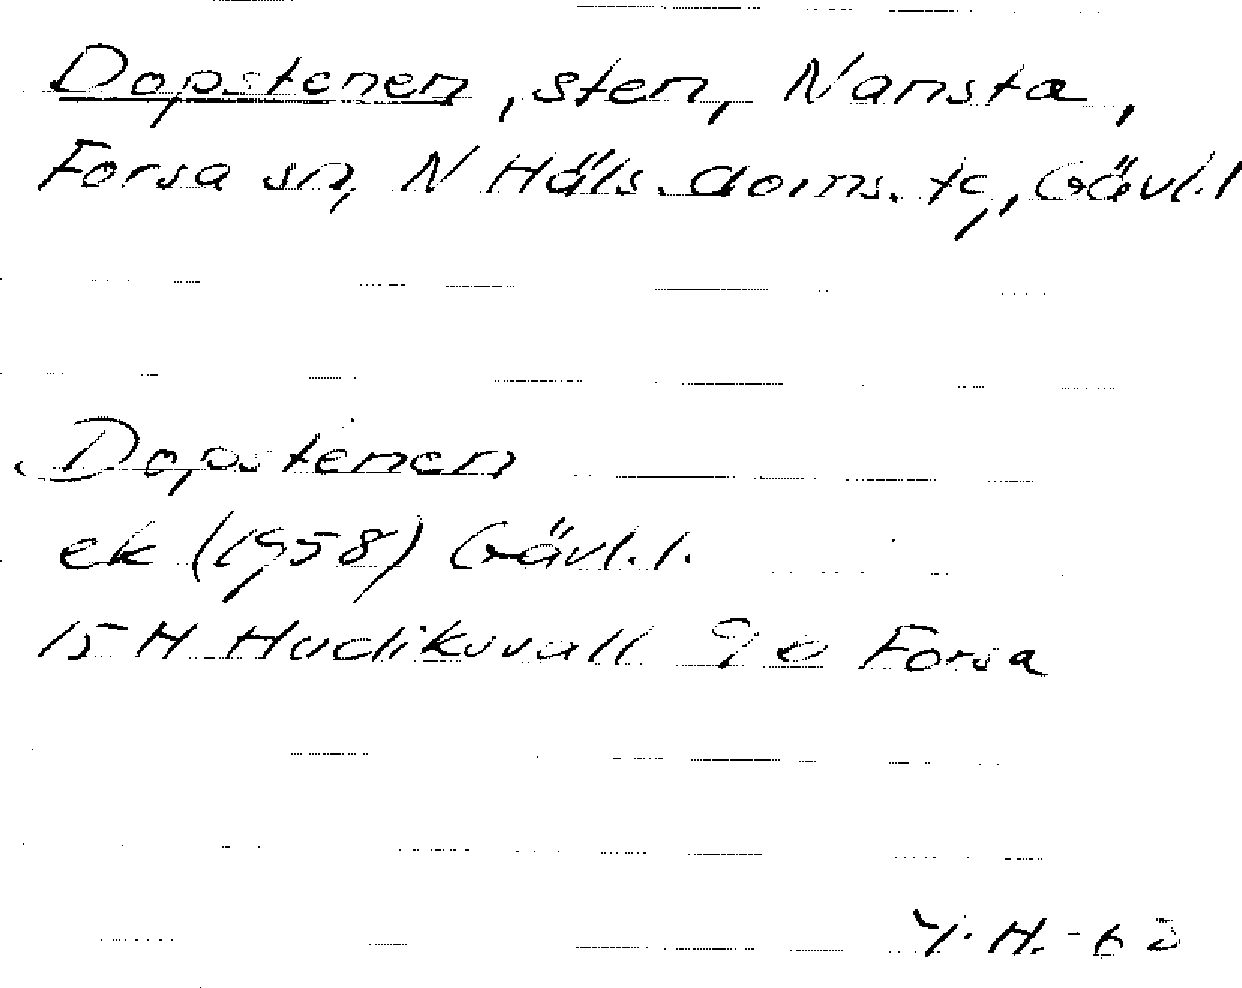 Dopstenen, sten, Nansta,
Forsa sn, N Häls. doms. tg, Gävl.l
Dopstenen
ek (1958) Gävl.l.
15 H Hudiksvall 9 e Forsa
Y.H. -62